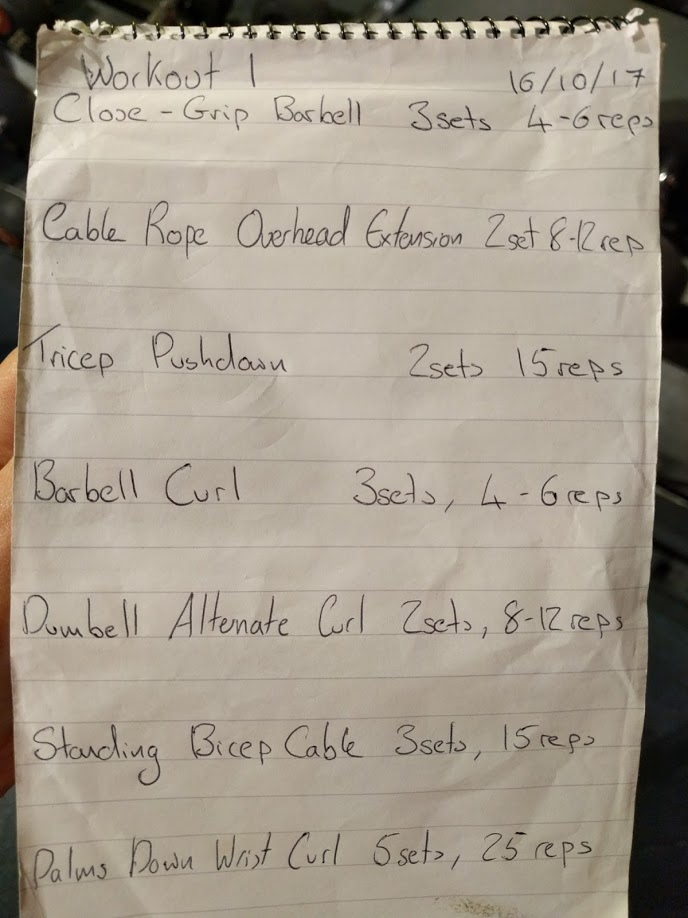 Workout 1 16/10/17
Close-Grip Barbell 3sets 4-6reps
Cable Rope Overhead Extension 2set 8-12rep
Tricep Pushdown 2sets 15reps
Barbell Curl 3sets, 4-6reps
Dumbell Alternate Curl 2sets, 8-12reps
Standing Bicep Cable 3sets, 15reps
Palms Down Wrist Curl 5sets, 25reps